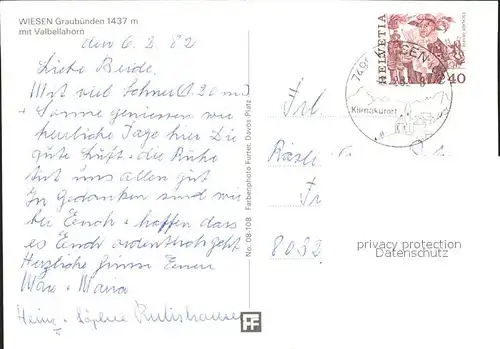 WIESEN Graubünden 1437 m
mit Valbellahorn
den 6. 2. 82
Liebe Beide.
Mit viel Schnee (1.20 m)
+ Sonne geniessen wir
herrliche Tage hier Die
gute Luft + die Ruhe
tut uns allen gut
In Gedanken sind wir
bei Euch + hoffen dass
es Euch ordentlich geht
Herzliche Grüsse Euren
Max + Maria
Heinz + Sophie Rutishauser
No. 08-108 Farbenphoto Furter, Davos Platz
HELVETIA
40
7494 WIESEN
Klimakurort
Frl.
8032
privacy protection
Datenschutz